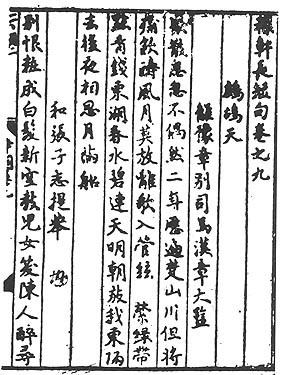 稼軒長短句卷之九
鷓鴣天
離豫章別司馬漢章大監
聚散悤悤不偶然二年歷遍楚山川但將
痛飲酬風月莫放離歌入管絃 縈綠帶
點青錢東湖春水碧連天明朝放我東歸
去後夜相思月滿船
和張子志提舉
別恨粧成白髮新空教兒女笑陳人醉尋